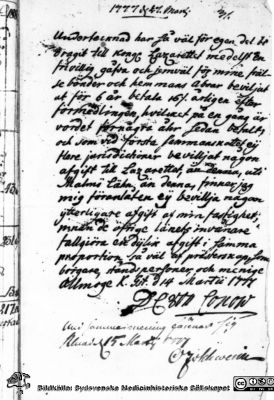 1777 d 27. Martij.
Undertecknad har så väl för egen del
til Kongl. Lazarettet medelst En
frivillig gåfva och jemväl för mine frälse
bönder och hemmans åbrar beviljat
för 6 år betala 16/. årligen efter
förmedlingen, hvilket på en gång är
vordet för några åhr sedan betalt,
och som vid första sammanskottet ej
flere jurisdictioner bevilljat någon
afgift til Lazarettet, än denna, uti
Malmö Lähn, än denna, finner jag
mig föranlåten ej bevillja någon
ytterligare afgift af min fastighet,
innan de öfrige länets invånare
fullgöra en dylik afgift i samma
proportion, så väl af prästerskap som
borgare, stånds personer, och menige
Allmoge d. 14 Martii 1777
Vid sammanräkning
15 Martii 1777
Bildkälla: Sydsvenska Medicinhistoriska Sällskapet